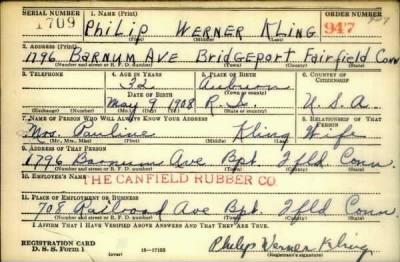 SERIAL NUMBER 1. NAME (Print) ORDER NUMBER
1709 Philip Werner Kling 947
(First) (Middle) (Last)
2. ADDRESS (Print)
1796 Barnum Ave Bridgeport Fairfield Conn
(Number and street or R. F. D. number) (Town) (County) (State)
3. TELEPHONE 4. AGE IN YEARS 5. PLACE OF BIRTH 6. COUNTRY OF CITIZENSHIP
32 Auburn
DATE OF BIRTH (Town or county)
May 9 1908 R. I. U. S. A.
(Exchange) (Number) (Mo.) (Day) (Yr.) (State or country)
7. NAME OF PERSON WHO WILL ALWAYS KNOW YOUR ADDRESS 8. RELATIONSHIP OF THAT PERSON
Mrs. Pauline Kling Wife
(Mr., Mrs., Miss) (First) (Middle) (Last)
9. ADDRESS OF THAT PERSON
1796 Barnum Ave Bpt. Ffld Conn.
(Number and street or R. F. D. number) (Town) (County) (State)
10. EMPLOYER'S NAME
THE CANFIELD RUBBER CO.
11. PLACE OF EMPLOYMENT OR BUSINESS
708 Railroad Ave Bpt. Ffld Conn.
(Number and street or R. F. D. number) (Town) (County) (State)
I AFFIRM THAT I HAVE VERIFIED ABOVE ANSWERS AND THAT THEY ARE TRUE.
REGISTRATION CARD
D. S. S. Form 1 (over) 16—17105 Philip Werner Kling
(Registrant's signature)